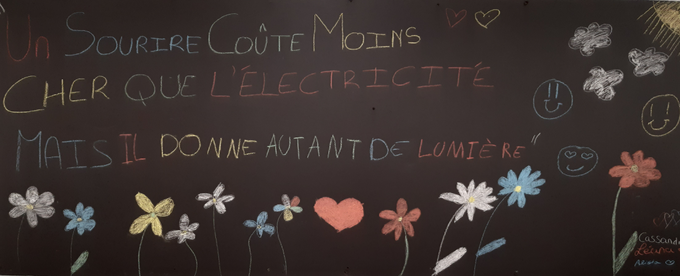 Un Sourire Coûte Moins
Cher que l'électricité
Mais il donne autant de lumière"
Cassandr
Léana